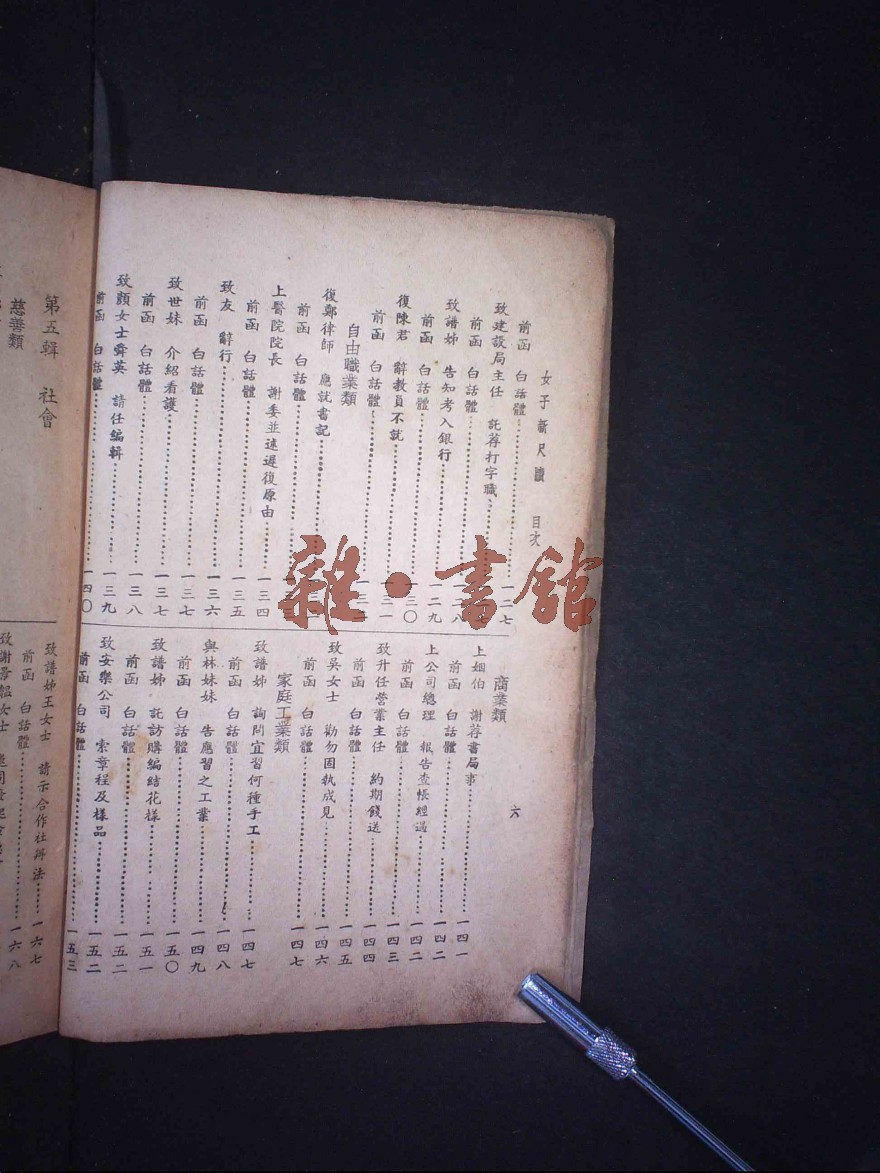 女子新尺牘　目次
六
前函　白話體……一二七
致建設局主任　託荐打字職……
前函　白話體……二八
致譜姊　告知考入銀行……一二九
前函　白話體……一三〇
復陳君　辭教員不就……一三一
前函　白話體……
自由職業類
復鄭律師　應就書記……
前函　白話體……
上醫院院長　謝委並述遲復原由……一三四
前函　白話體……一三五
致友　辭行……一三六
前函　白話體……一三七
致世妹　介紹看護……一三七
前函　白話體……一三八
致顏女士舜英　請任編輯……一三九
前函　白話體……一四〇
商業類
上姻伯　謝荐書局事……一四一
前函　白話體……一四二
上公司總理　報告查帳經過……一四二
前函　白話體……一四三
致升任營業主任　約期餞送……一四四
前函　白話體……一四五
致吳女士　勸勿固執成見……一四六
前函　白話體……一四七
家庭工業類
致譜姊　詢問宜習何種手工……一四七
前函　白話體……一四八
與林妹妹　告應習之工業……一四九
前函　白話體……一五〇
致譜姊　託訪購編結花樣……一五一
前函　白話體……一五二
致安樂公司　索章程及樣品……一五二
前函　白話體……一五三
第五輯　社會
慈善類
致譜姊王女士　請示合作社辦法……一六七
前函　白話體……一六八
雜·書館